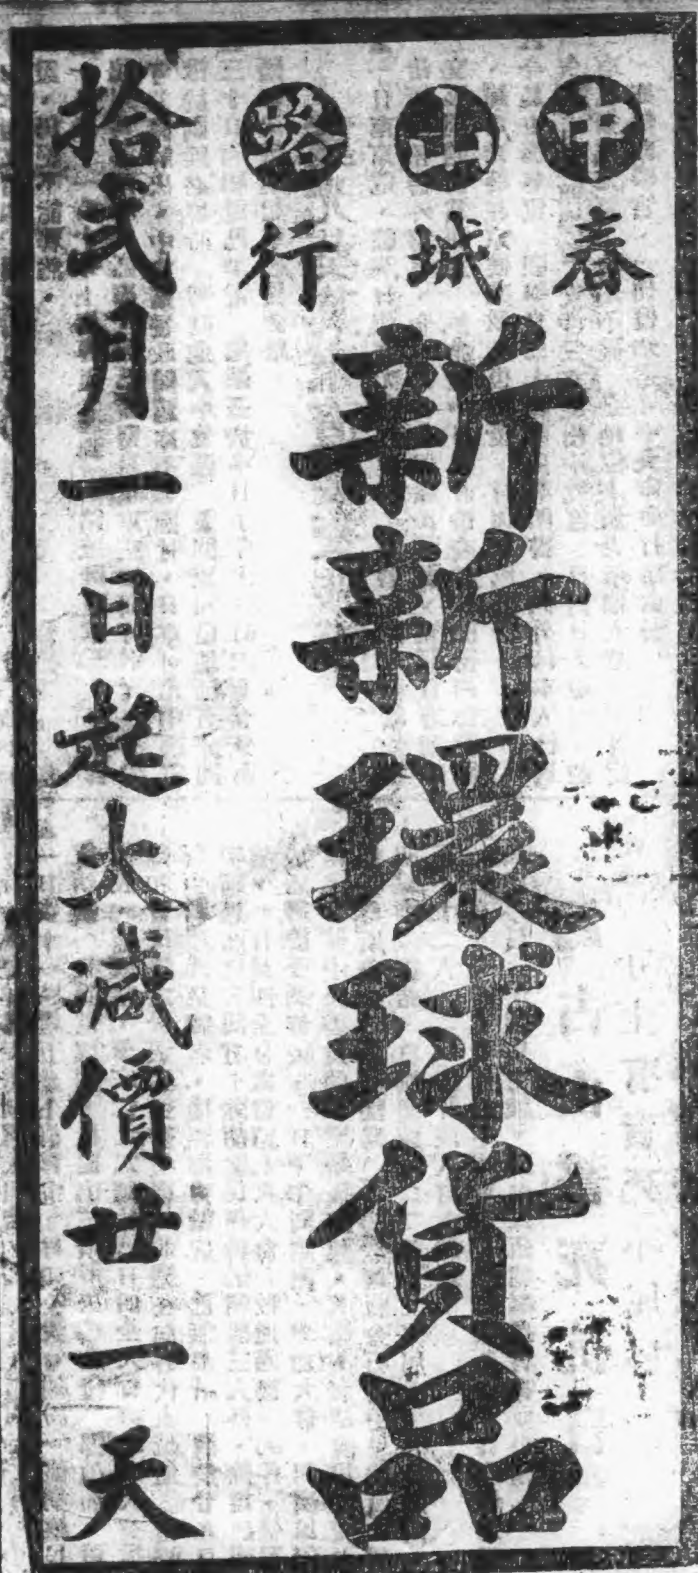 中山路
春城行
新新環球貨品
拾弍月一日起大減價廿一天